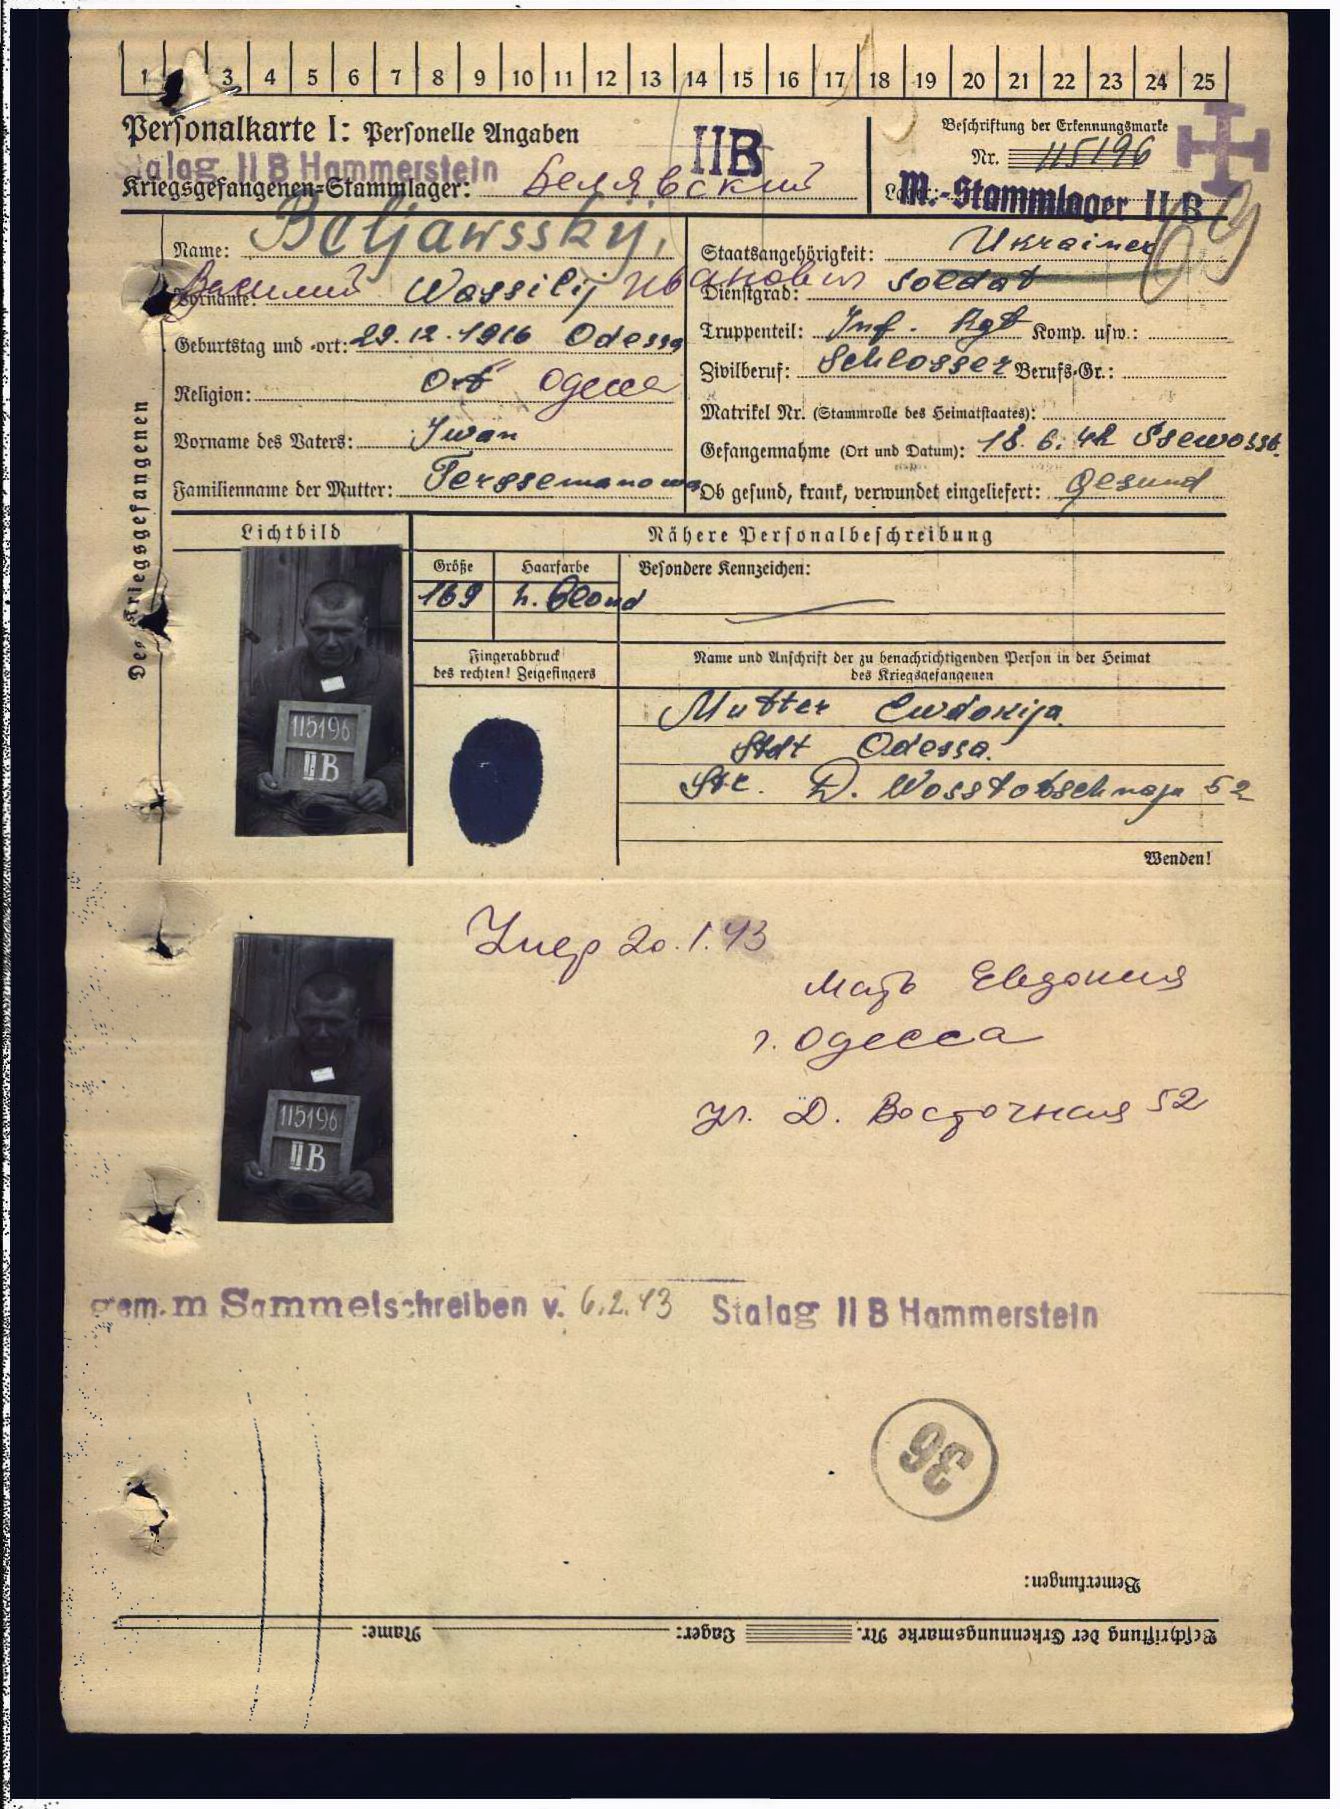 1 3 4 5 6 7 8 9 10 11 12 13 14 15 16 17 18 19 20 21 22 23 24 25
Personalkarte I: Personelle Angaben
II B
Beschriftung der Erkennungsmarke
Nr. 115196
Stalag II B Hammerstein
Kriegsgefangenen-Stammlager: Белявский
M.-Stammlager II B
Name: Beljawssky,
Василий Иванович
Vorname: Wassilij
Geburtstag und -ort: 29.12.1916 Odessa
Religion: Ort Одесса
Vorname des Vaters: Iwan
Familienname der Mutter: Terssemanowa
Staatsangehörigkeit: Ukrainer
Dienstgrad: Soldat
Truppenteil: Inf. Rgt Komp. usw.:
Zivilberuf: Schlosser Berufs-Gr.:
Matrikel Nr. (Stammrolle des Heimatstaates):
Gefangennahme (Ort und Datum): 18.6.42 Ssewosst.
Ob gesund, krank, verwundet eingeliefert: Gesund
Des Kriegsgefangenen
Lichtbild
Nähere Personalbeschreibung
Größe Haarfarbe Besondere Kennzeichen:
169 h. blond
Fingerabdruck
des rechten! Zeigefingers
Name und Anschrift der zu benachrichtigenden Person in der Heimat
des Kriegsgefangenen
Mutter Ewdokija
Stdt Odessa.
Str. D. Wosstotschnaja 52
115196
II B
Wenden!
Умер 20.1.43
Мать Евдокия
г. Одесса
ул. Д. Восточная 52
115196
II B
gem. m Sammelschreiben v. 6.2.43 Stalag II B Hammerstein
36
Bemerkungen:
Beschriftung der Erkennungsmarke Nr. Lager: Name: